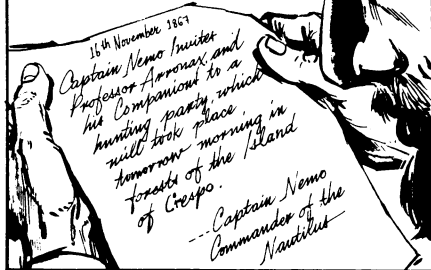 16th November 1867
Captain Nemo Invites
Professor Arronax, and
his Companions to a
hunting party, which
will took place
tomorrow morning in
forests of the Island
of Crespo.
---Captain Nemo
Commander of the
Nautilus